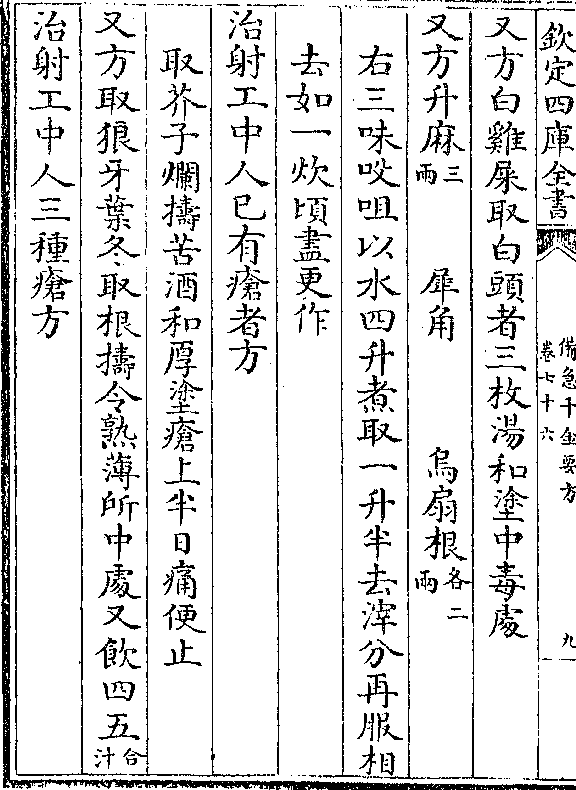 欽定四庫全書
備急千金要方
卷七十六
九
又方白雞屎取白頭者三枚湯和塗中毒處
又方升麻三兩 犀角 烏扇根各二兩
右三味㕮咀以水四升煮取一升半去滓分再服相
去如一炊頃盡更作
治射工中人已有瘡者方
取芥子爛擣苦酒和厚塗瘡上半日痛便止
又方取狼牙葉冬取根擣令熟薄所中處又飲四五合汁
治射工中人三種瘡方